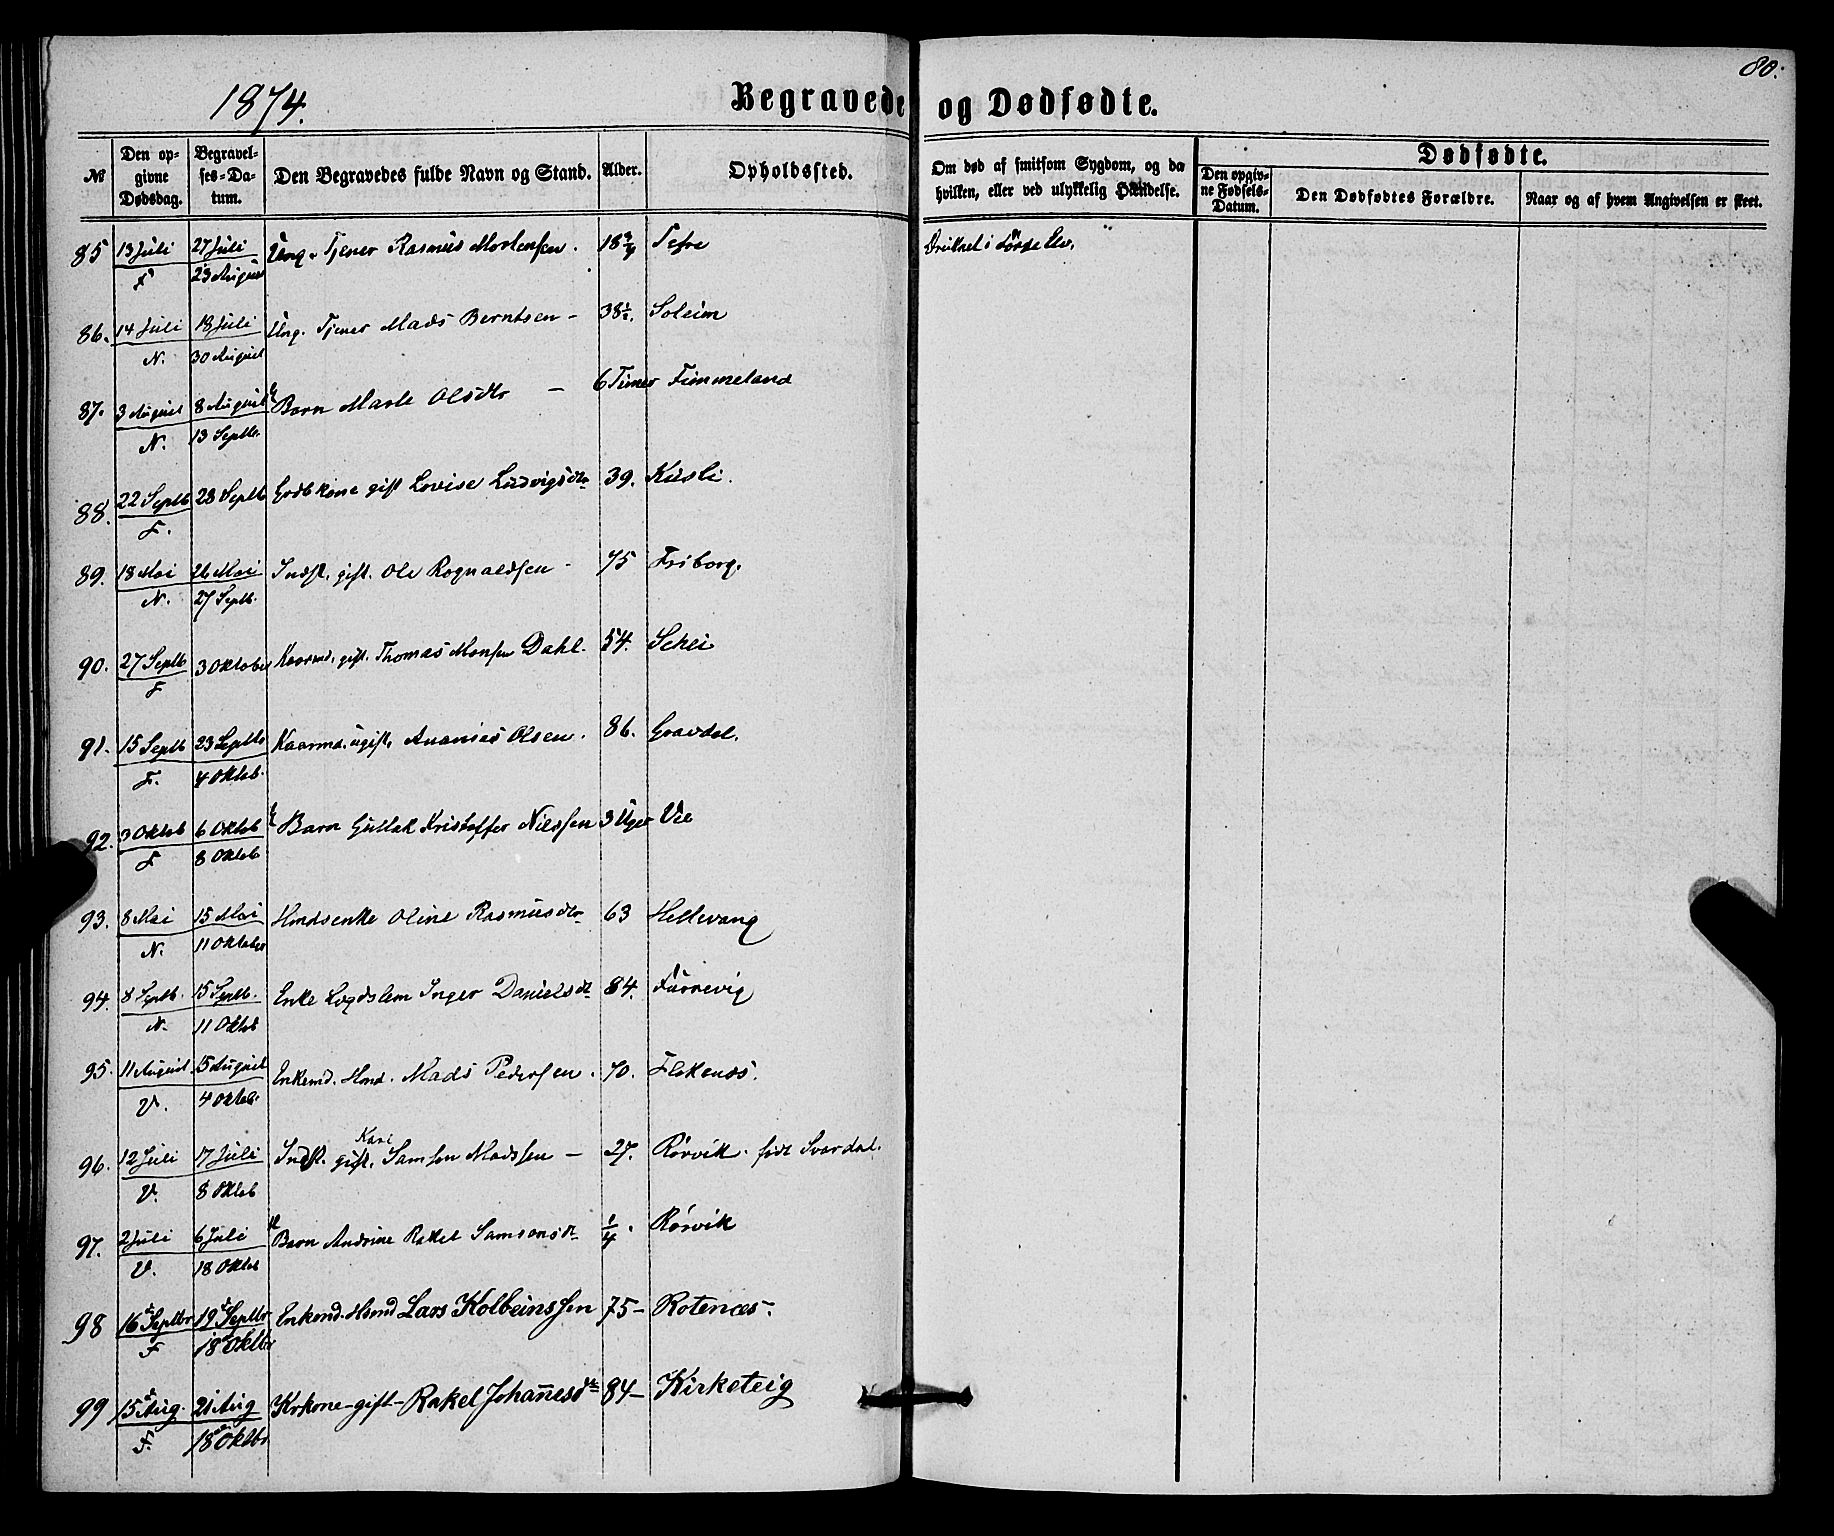 80.
1874.
Begravede og Dødfødte.
№ Den opgivne Dødsdag. Begravelses-Datum. Den Begravedes fulde Navn og Stand. Alder. Opholdssted. Om død af smitsom Sygdom, og da hvilken, eller ved ulykkelig Hændelse. Dødfødte.
Den opgivne Fødsels-Datum. Den Dødfødtes Forældre. Naar og af hvem Angivelsen er skeet.
85 13 Juli 27 Juli Ung. Tjener Rasmus Mortensen. 18 3/4 Tefre Druknet i Førde Elv.
F 23 August
86. 14 Juli 18 Juli Ung. Tjener Mads Berntsen - 38 1/2. Soleim
N. 30 August
87. 3 August 8 August Barn Marte Olsdtr - 6 Timer Fimmeland
N. 13 Septbr.
88. 22 Septb 28 Septb Gbdskone gift Lovise Ludvigsdtr 39. Kusli.
F.
89. 18 Mai 26 Mai Indst. gift. Ole Rognaldsen - 75 Friborg.
N. 27 Septb.
90. 27 Septb 3 Oktober Kaarmd. gift. Thomas Monsen Dahl. 54. Schei
F
91. 15 Septb 23 Septbr Kaarmd. ugift. Ananias Olsen. 86. Gravdal.
F. 4 Oktob.
92. 3 Oktob 6 Oktob Barn Gullak Kristoffer Nilssen 3 Uger Vie
F 8 Oktob
93. 8 Mai 15 Mai Hmdsenke Oline Rasmusdtr 63 Hellevang
N. 11 Oktober
94. 8 Septb. 15 Septb. Enke Lægdslem Inger Danielsdtr 84. Furrevig
N. 11 Oktob
95. 11 August 15 August Enkemd. Hmd. Mads Pedersen. 70. Flokenes.
V. 4 Oktob.
Kari
96. 12 Juli 17 Juli Indst. gift. Samson Madssen - 27. Rørvik. født Svardal.
V. 8 Oktob
97. 2 Juli 6 Juli Barn Andrine Rakel Samsonsdtr 1/4. Rørvik
V. 18 Oktob
98 16 Septbr 19 Septbr Enkemd. Huusmd Lars Kolbeinssen 75- Rotenæs.
F 18 Oktbr
99 15 Aug. 21 Aug Krkone-gift- Rakel Johannesdtr 84- Kirketeig
F. 18 Oktbr